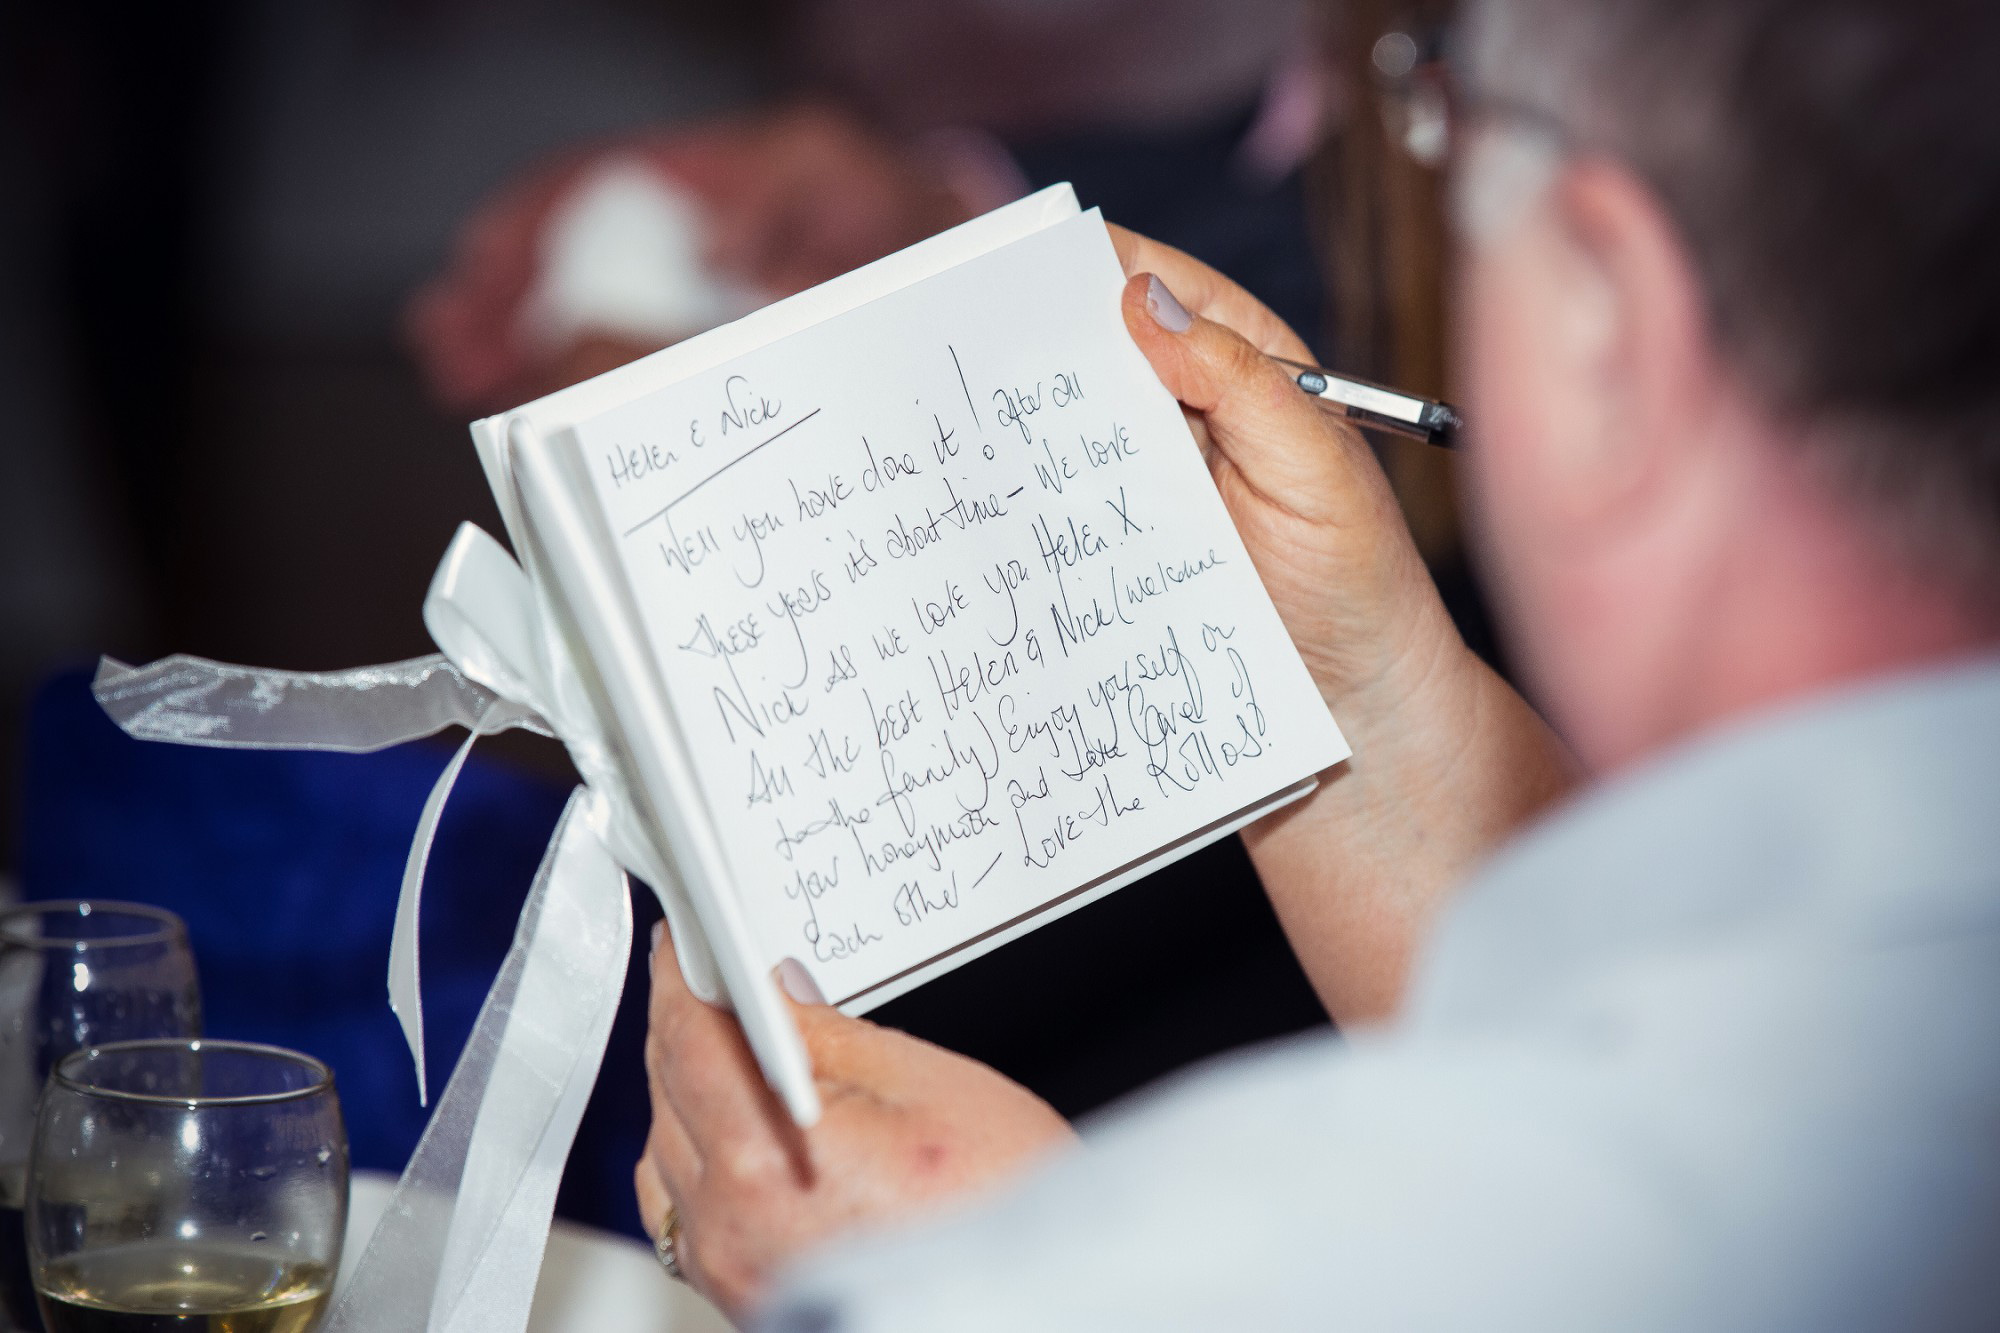 Helen & Nick
Well you have done it! after all
these years it's about time - We love
Nick as we love you Helen X.
All the best Helen & Nick (welcome
to the family) Enjoy yourself on
your honeymoon and take care of
Each other - Love the
MED